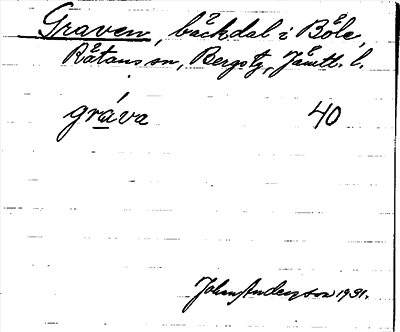 Graven, bäckdal i Böle,
Rätans sn, Bergs tg, Jämtl. l.
gráva 40
John Anderson 1931.